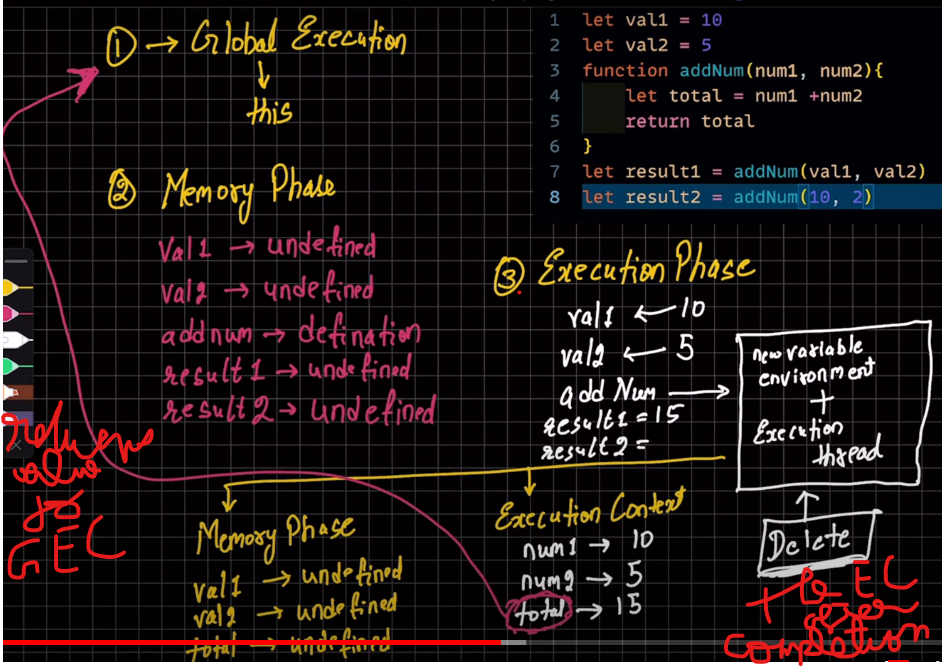 ① → Global Execution
↓
this
② Memory Phase
Val1 → undefined
val2 → undefined
addnum → defination
result1 → undefined
result2 → undefined
1 let val1 = 10
2 let val2 = 5
3 function addNum(num1, num2){
4 let total = num1 +num2
5 return total
6 }
7 let result1 = addNum(val1, val2)
8 let result2 = addNum(10, 2)
③ Execution Phase
val1 ← 10
val2 ← 5
add Num →
result1 = 15
result2 =
new variable
environment
+
Execution
thread
Delete
Memory Phase
val1 → undefined
val2 → undefined
total → undefined
Execution Context
num1 → 10
num2 → 5
total → 15
value
to
GEC
EC
completion